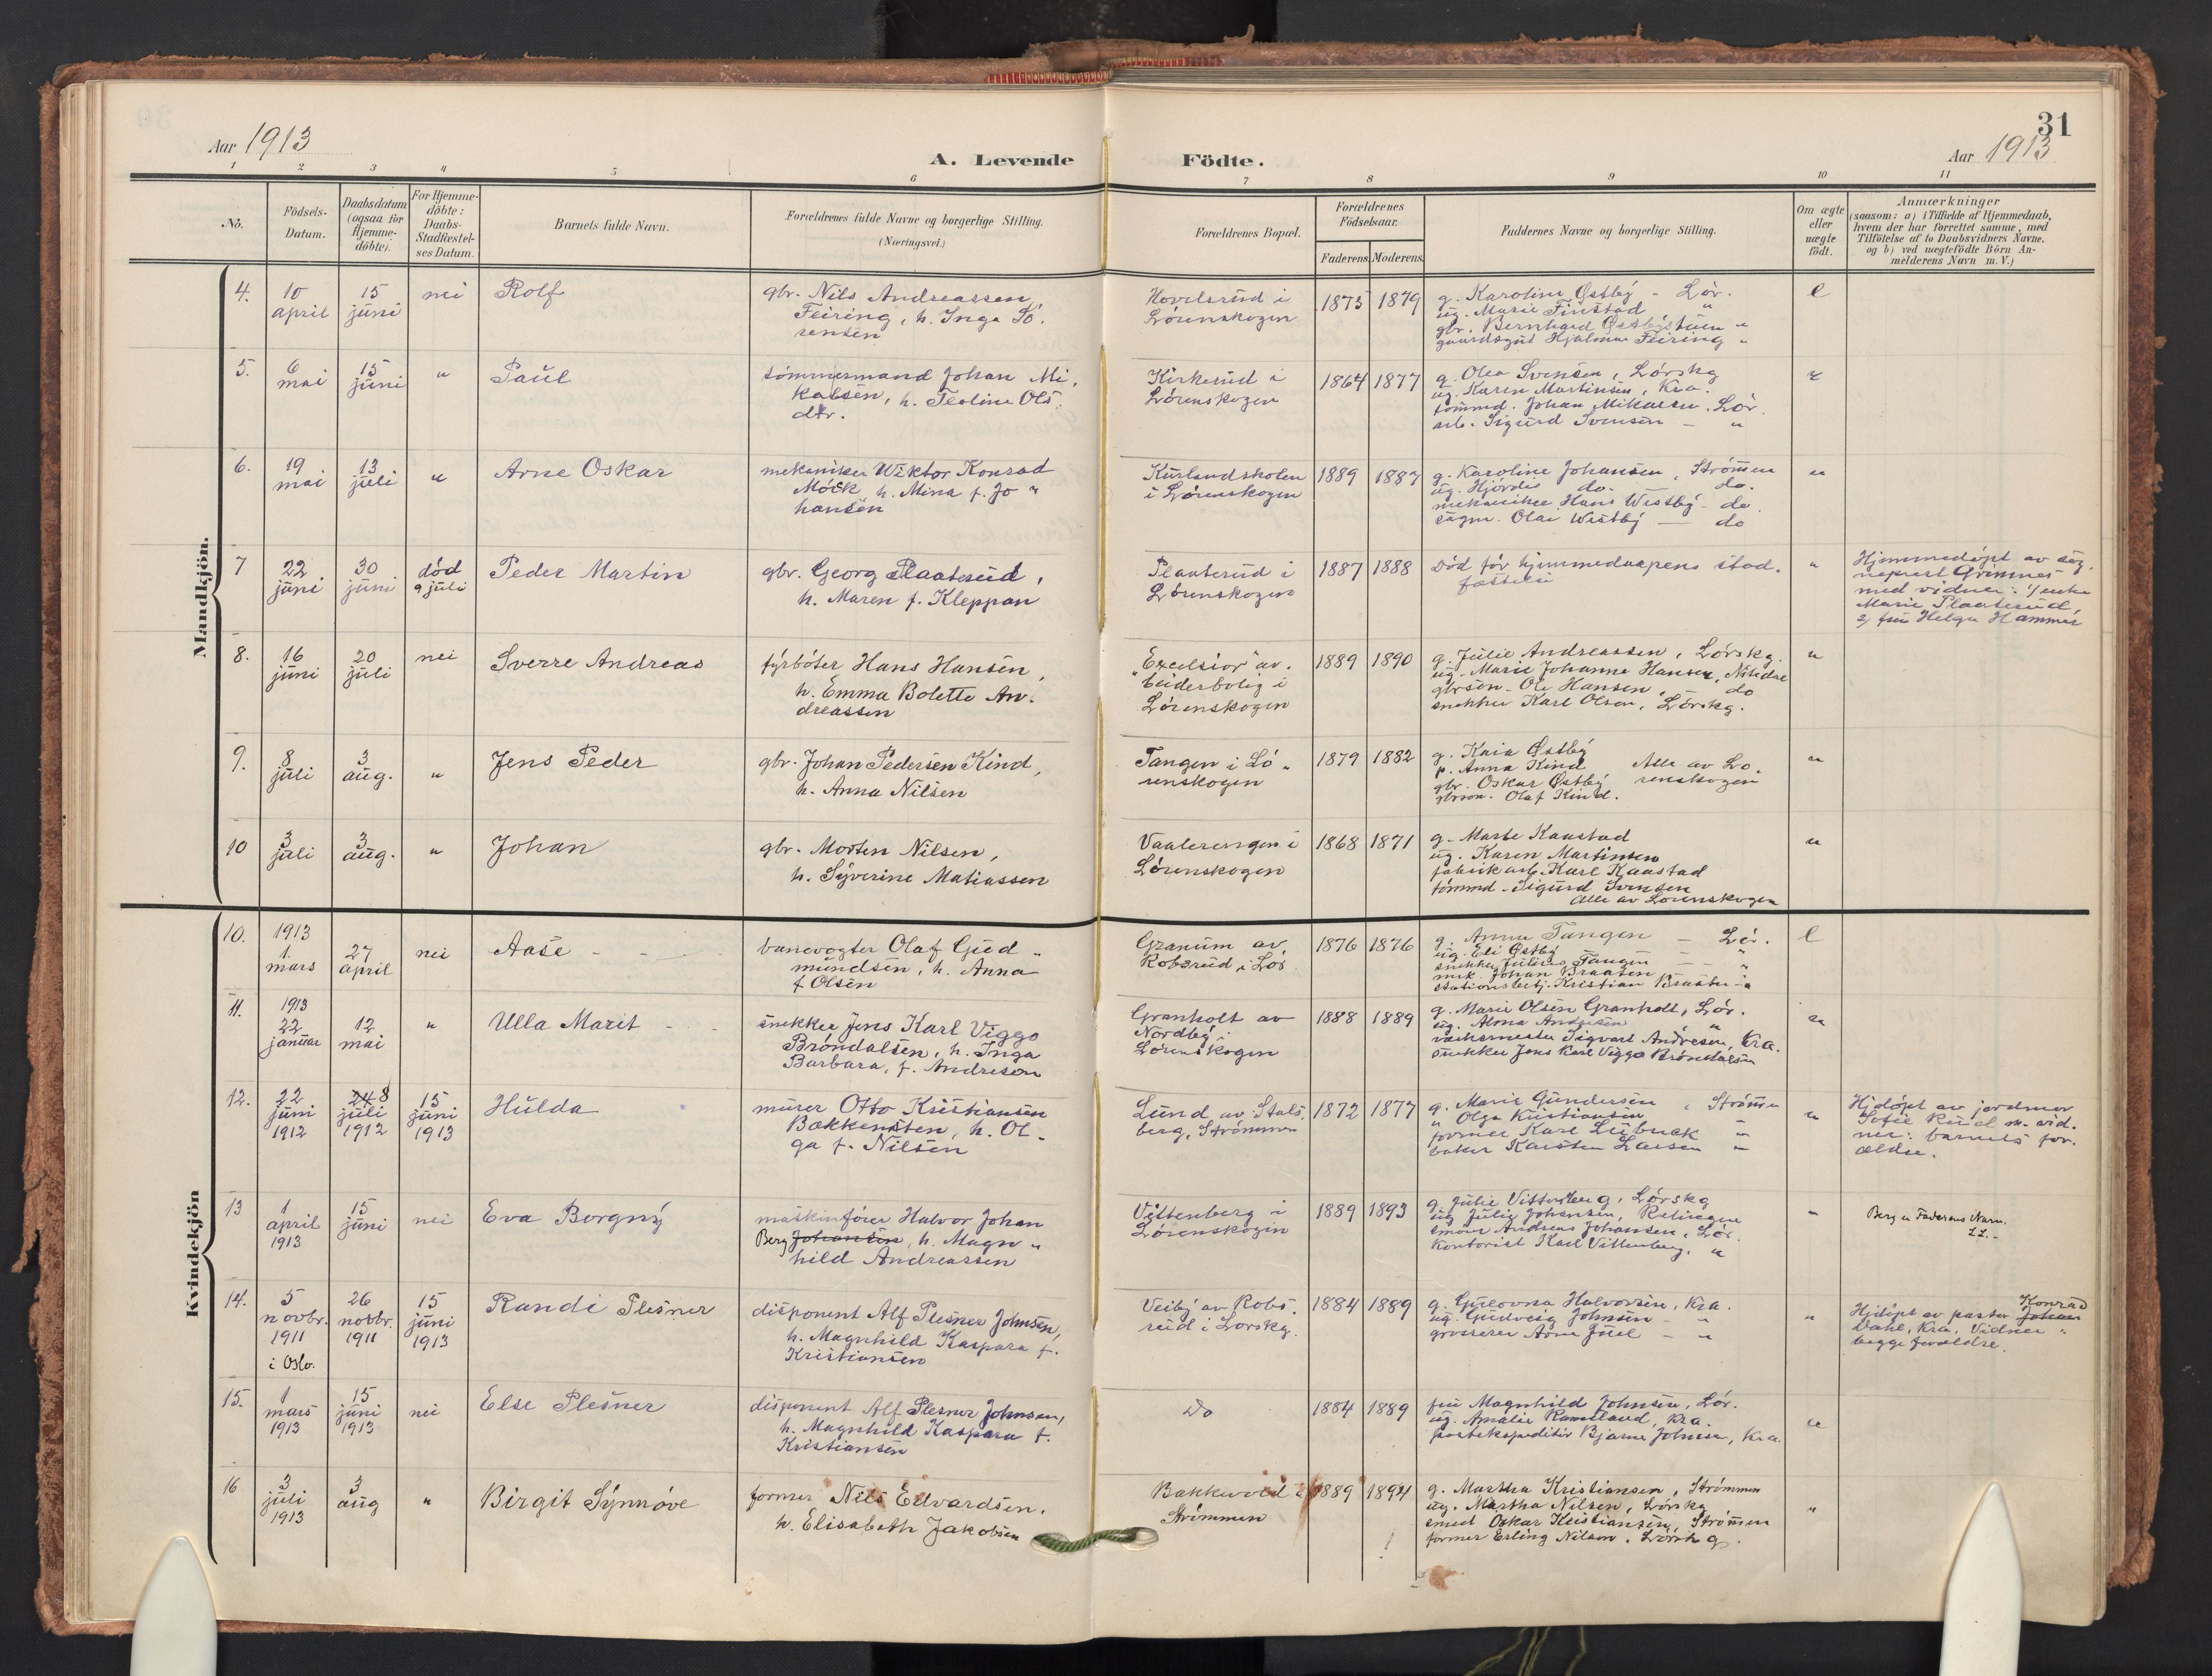 31
Aar 1913
A. Levende Födte.
Aar 1913
1 2 3 4 5 6 7 8 9 10 11
No.
Födsels-
Datum.
Daabsdatum
(ogsaa for
Hjemme-
döbte).
For Hjemme-
döbte:
Daabs-
Stadfæstel-
ses Datum.
Barnets fulde Navn.
Forældrenes fulde Navne og borgerlige Stilling.
(Næringsvei.)
Forældrenes Bopæl.
Forældrenes
Födselsaar.
Faderens. Moderens.
Faddernes Navne og borgerlige Stilling.
Om ægte
eller
uægte
födt.
Anmærkninger
(saasom: a) i Tilfælde af Hjemmedaab,
hvem der har forrettet samme, med
Tilföielse af to Daabsvidners Navne.
og b) ved uægtefödte Börn An-
melderens Navn m. V.)
Mandkjön.
4.
10
april
15
juni
nei
Rolf
gbr. Nils Andreassen
Feiring, h. Inga Sö-
rensen
Hovelsrud i
Lørenskogen
1875 1879
g. Karoline Østby - Lør.
ug. Marie Finstad "
gbr. Bernhard Østbystuen "
gaardsgut Hjalmar Feiring "
e
5.
6
mai
15
juni
"
Paul
tømmermand Johan Mi-
kalsen, h. Teoline Ols-
dtr.
Kirkerud i
Lørenskogen
1864 1877
g. Olea Svensen, Lørskg
ug. Karen Martinsen, Kra.
tømmd. Johan Mikalsen. Lør.
arb. Sigurd Svensen - "
6.
19
mai
13
juli
"
Arne Oskar
mekaniker Wiktor Konrad
Möck h. Mina f. Jo "
hansen
Kurlandskolen
i Lørenskogen
1889 1887
g. Karoline Johansen, Strømmen
ug. Hjördis do. do.
mekaniker Hans Westby - do.
sagm. Olai Westby — do
"
7
22
juni
30
juni
død
9 juli
Peder Martin
gbr. Georg Plaaterud,
h. Maren f. Kleppan
Plaaterud i
Lørenskogen
1887 1888
Død før hjemmedaapens stad-
fæstelse
"
Hjemmedøpt av sog-
neprest Grimnes
med vidner: 1/ enke
Marie Plaaterud,
2/ fru Helga Hammer
8.
16
juni
20
juli
nei
Sverre Andreas
fyrbøter Hans Hansen,
h. Emma Bolette An-
dreassen
"Excelsior" ar-
beiderbolig i
Lørenskogen
1889 1890
g. Julie Andreassen, Lørskg.
ug. Marie Johanne Hansen, Nitedal
gbrsøn. Ole Hansen, - do
snekker Karl Olsen, Lørskg.
"
9.
8
juli
3
aug.
"
Jens Peder
gbr. Johan Pedersen Kind,
h. Anna Nilsen
Tangen i Lø-
renskogen
1879 1882
g. Kaia Østby
p. Anna Kind
gbr. Oskar Østby
gbrsøn. Olaf Kind.
Alle av Lø-
renskogen
"
10
3
juli
3
aug.
"
Johan
gbr. Morten Nilsen,
h. Syverine Matiassen
Vaalerengen i
Lørenskogen
1868 1871
g. Marte Kaastad
ug. Karen Martinsen
fabrikarb. Karl Kaastad
tømmd. Sigurd Svensen
Alle av Lørenskogen
"
Kvindekjön
10.
1913
1.
mars
27
april
nei
Aase
banevogter Olaf Gud "
mundsen, h. Anna
f Olsen
Granum av
Robsrud, i Lør.
1876 1876
g. Anna Tangen — Lør.
ug. Eli Østby "
snekker Julius Tangen "
mek. Johan Braaten "
stationsbetj. Kristian Braaten "
e
11.
1913
22
januar
12
mai
"
Ulla Marit
snekker Jens Karl Viggo
Brøndalsen, h. Inga
Barbara, f. Andresen
Granholt av
Nordby i
Lørenskogen
1888 1889
g. Marie Olsen Granholt, Lør.
ug. Alma Andresen "
verksmester Sigvart Andresen, Kra.
snekker Jens Karl Viggo Brøndalsen
"
12.
22
juni
1912
24 8
juli
1912
15
juni
1913
Hulda
murer Otto Kristiansen
Bakkensten, h. Ol-
ga f. Nilsen
Lund av Stals-
berg, Strømmen
1872 1877
g. Marie Gundersen, Strømmen
" Olga Kristiansen "
former Karl Lübeck "
baker Karsten Larsen "
"
Hjdøpt av jordmor
Sofie Ruud m. vid-
ner: barnets for-
ældre.
13
1
april
1913
15
juni
nei
Eva Borgny
maskinfører Halvor Johan
Berg Johansen, h. Magn "
hild Andreassen
Vittenberg i
Lørenskogen
1889 1893
g. Julie Vittenberg, Lørskg
ug Julie Johansen, Rælingen
smører Andreas Johansen, Lør.
kontorist Karl Vittenberg, "
"
Berg er Faderens Navn.
L.L.
14.
5
novbr.
1911
i Oslo.
26
novbr.
1911
15
juni
1913
Randi Plesner
disponent Alf Plesner Johnsen,
h. Magnhild Kaspara f.
Kristiansen
Veiby av Robs-
rud i Lørskg.
1884 1889
g. Gulovna Halvorsen, Kra.
ug. Gudveig Johnsen - "
grosserer Arne Juel - "
"
Konrad
Hjdøpt av pastor Johan
Dahl, Kra. Vidner "
begge forældre.
15.
1
mars
1913
15
juni
1913
nei
Else Plesner
disponent Alf Plesner Johnsen,
h. Magnhild Kaspara f.
Kristiansen
Do
1884 1889
fru Magnhild Johnsen, Lør.
ug. Amalie Ramsland, Kra.
postekspeditör Bjarne Johnsen, Kra.
"
16
3
juli
1913
3
aug
"
Birgit Synnøve
former Nils Edvardsen.
h. Elisabeth Jakobsen
Bakkevold i
Strømmen
1889 1894
g. Martha Kristiansen, Strømmen
ug. Martha Nilsen, Lørskg
smed Oskar Kristiansen, Strømmen
former Erling Nilsen. Lørskg.
"